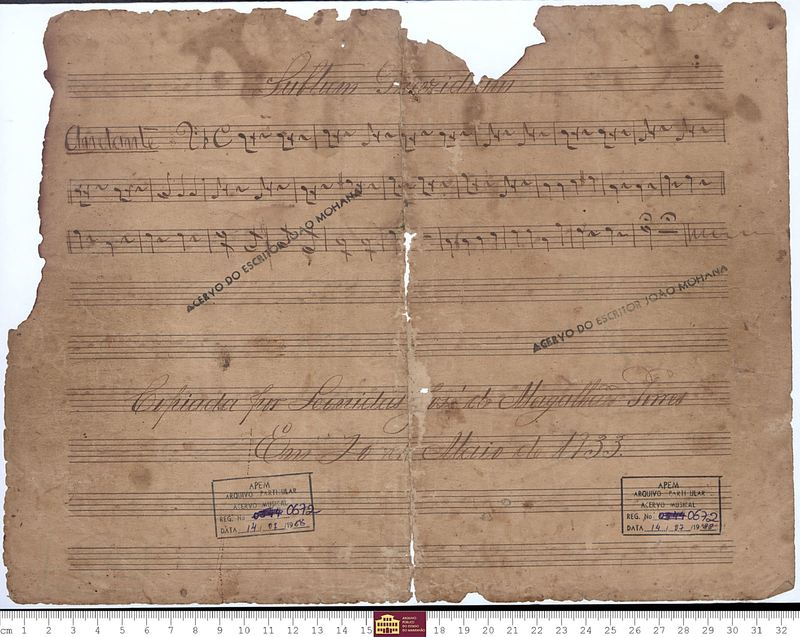 Subtum Prezidium
Andante C
ACERVO DO ESCRITOR JOÃO MOHANA
ACERVO DO ESCRITOR JOÃO MOHANA
Copiada por Leonidas José de Magalhães Pires
Em de Maio de 1933.
APEM
ARQUIVO PARTICULAR
ACERVO MUSICAL
REG. No 0672
DATA 14 / 07 / 19
APEM
ARQUIVO PARTICULAR
ACERVO MUSICAL
REG. No 0672
DATA 14 / 07 / 19
cm 1 2 3 4 5 6 7 8 9 10 11 12 13 14 15 18 19 20 21 22 23 24 25 26 27 28 29 30 31 32
ARQUIVO
PÚBLICO
DO ESTADO
DO MARANHÃO